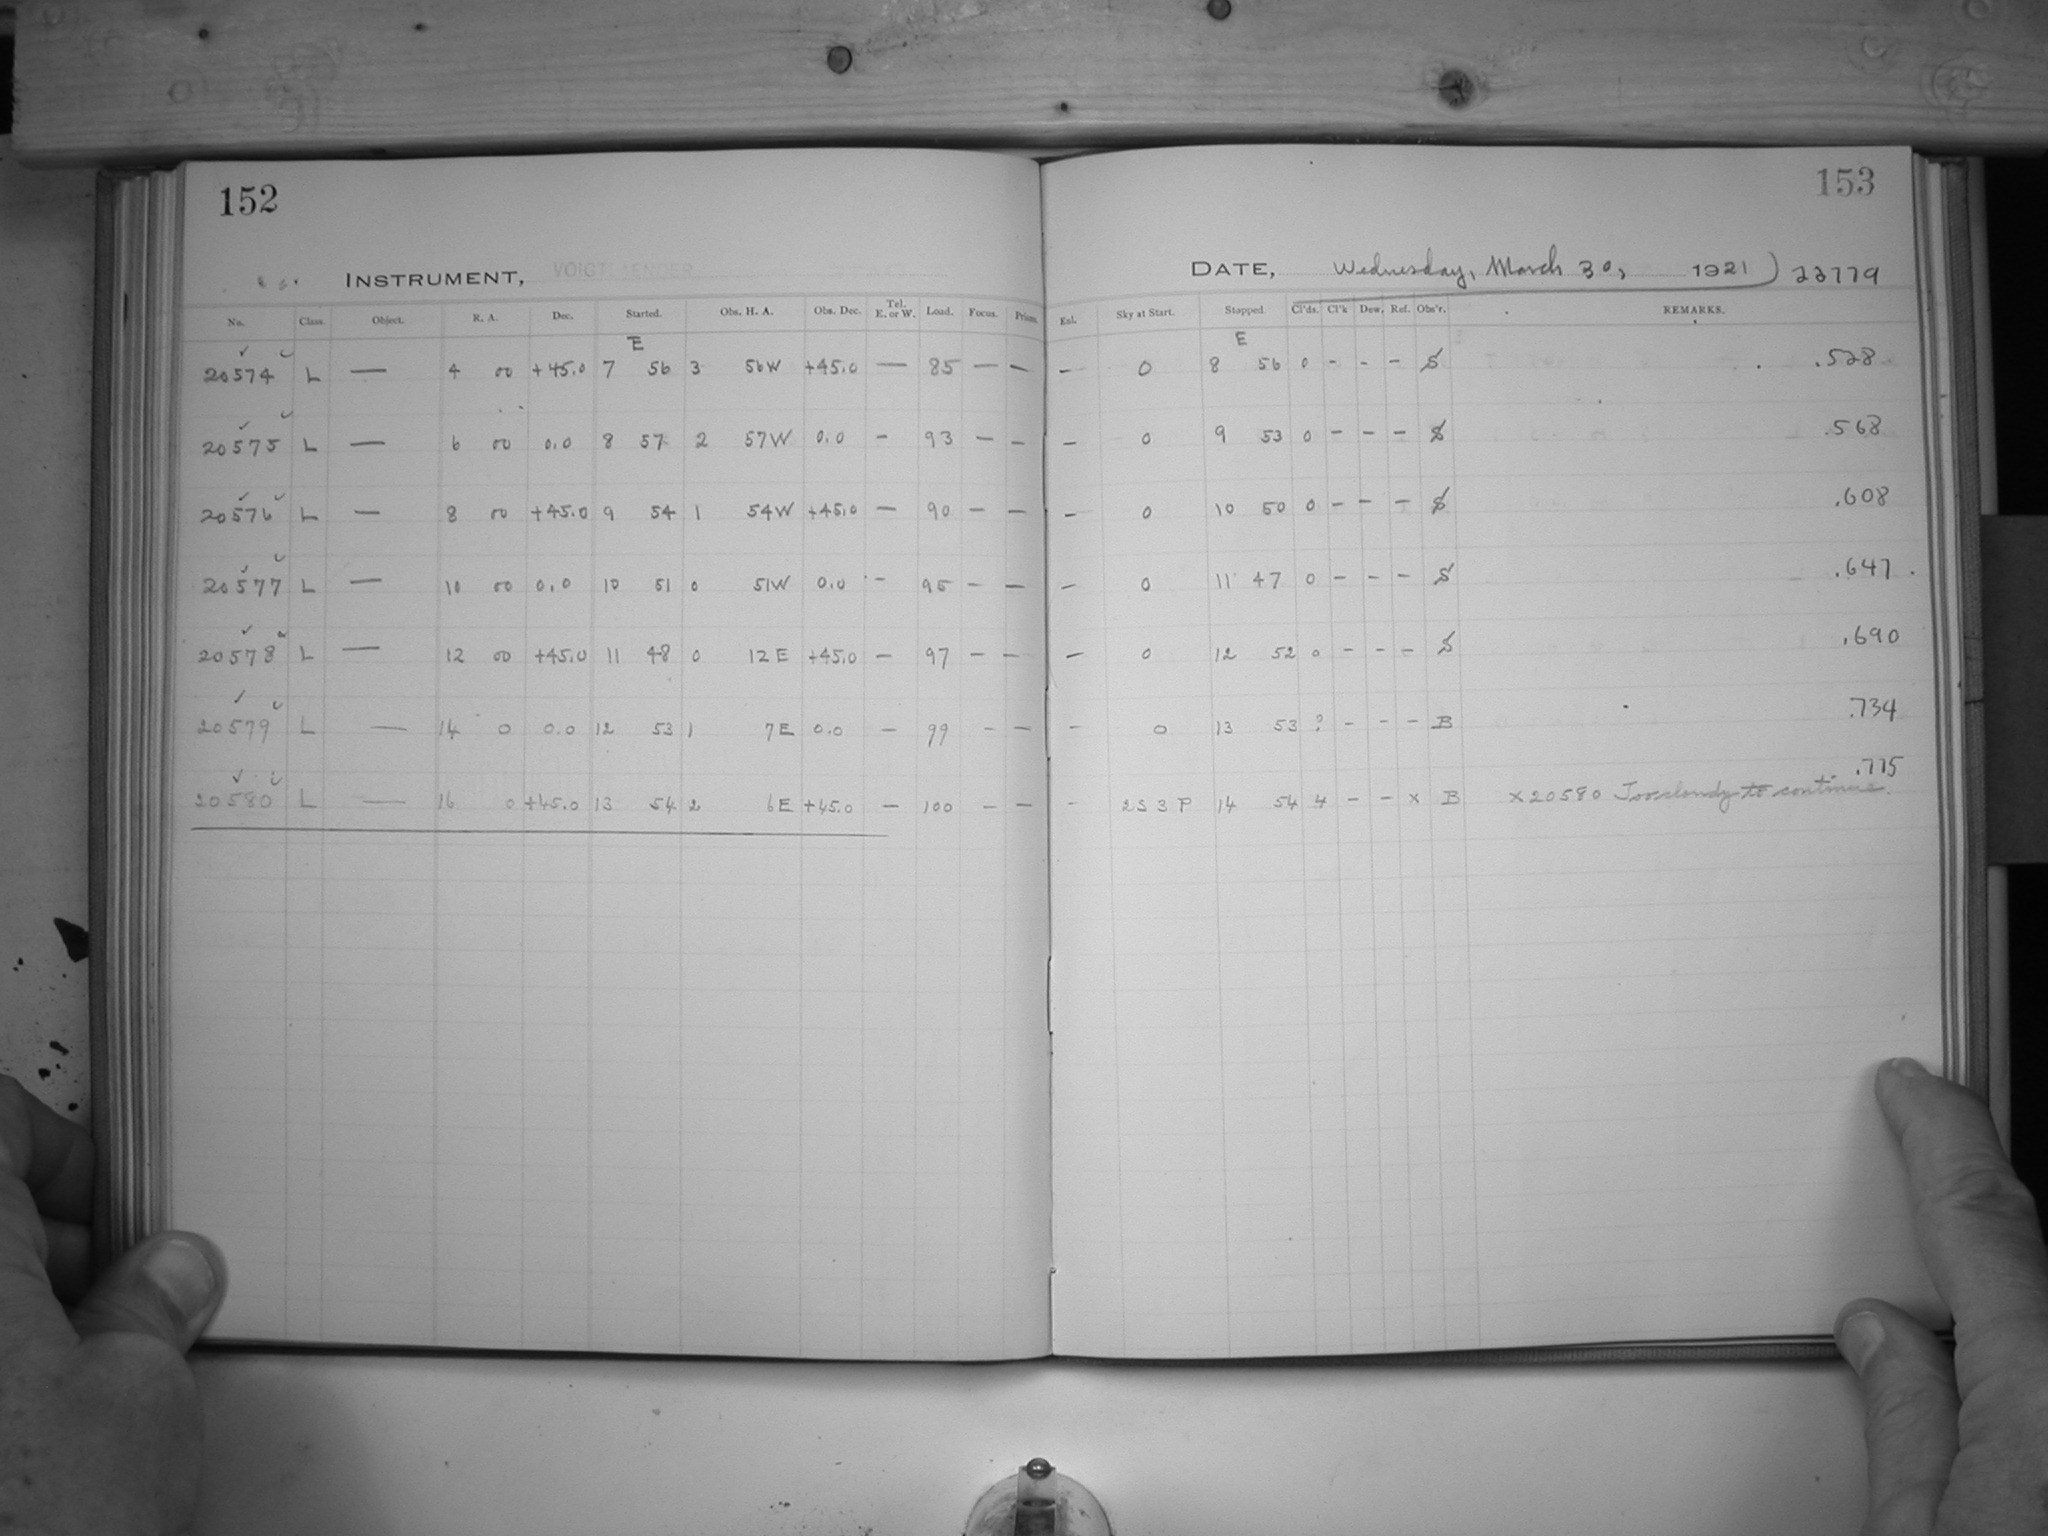 152
INSTRUMENT, VOIGTLAENDER
No. Class. Object. R. A. Dec. Started. Obs. H. A. Obs. Dec. Tel. E. or W. Load. Focus. Prism.
E
20574 L — 4 00 +45.0 7 56 3 56W +45.0 — 85 — —
20575 L — 6 00 0.0 8 57 2 57W 0.0 - 93 - -
20576 L — 8 00 +45.0 9 54 1 54W +45.0 — 90 - -
20577 L — 10 00 0.0 10 51 0 51W 0.0 - 95 - -
20578 L — 12 00 +45.0 11 48 0 12E +45.0 - 97 - -
20579 L — 14 0 0.0 12 53 1 7E 0.0 - 99 - -
20580 L — 16 0 +45.0 13 54 2 6E +45.0 - 100 - -
153
DATE, Wednesday, March 30, 1921) 22779
Exl. Sky at Start. Stopped Cl'ds. Cl'k Dew. Ref. Obs'r. REMARKS.
E
- 0 8 56 0 - - - S .528
- 0 9 53 0 - - - S .568
- 0 10 50 0 - - - S .608
- 0 11 47 0 - - - S .647
- 0 12 52 0 - - - S .690
- 0 13 53 ? - - - B .734
.775
- 2S 3 P 14 54 4 - - x B x20580 Too cloudy to continue.